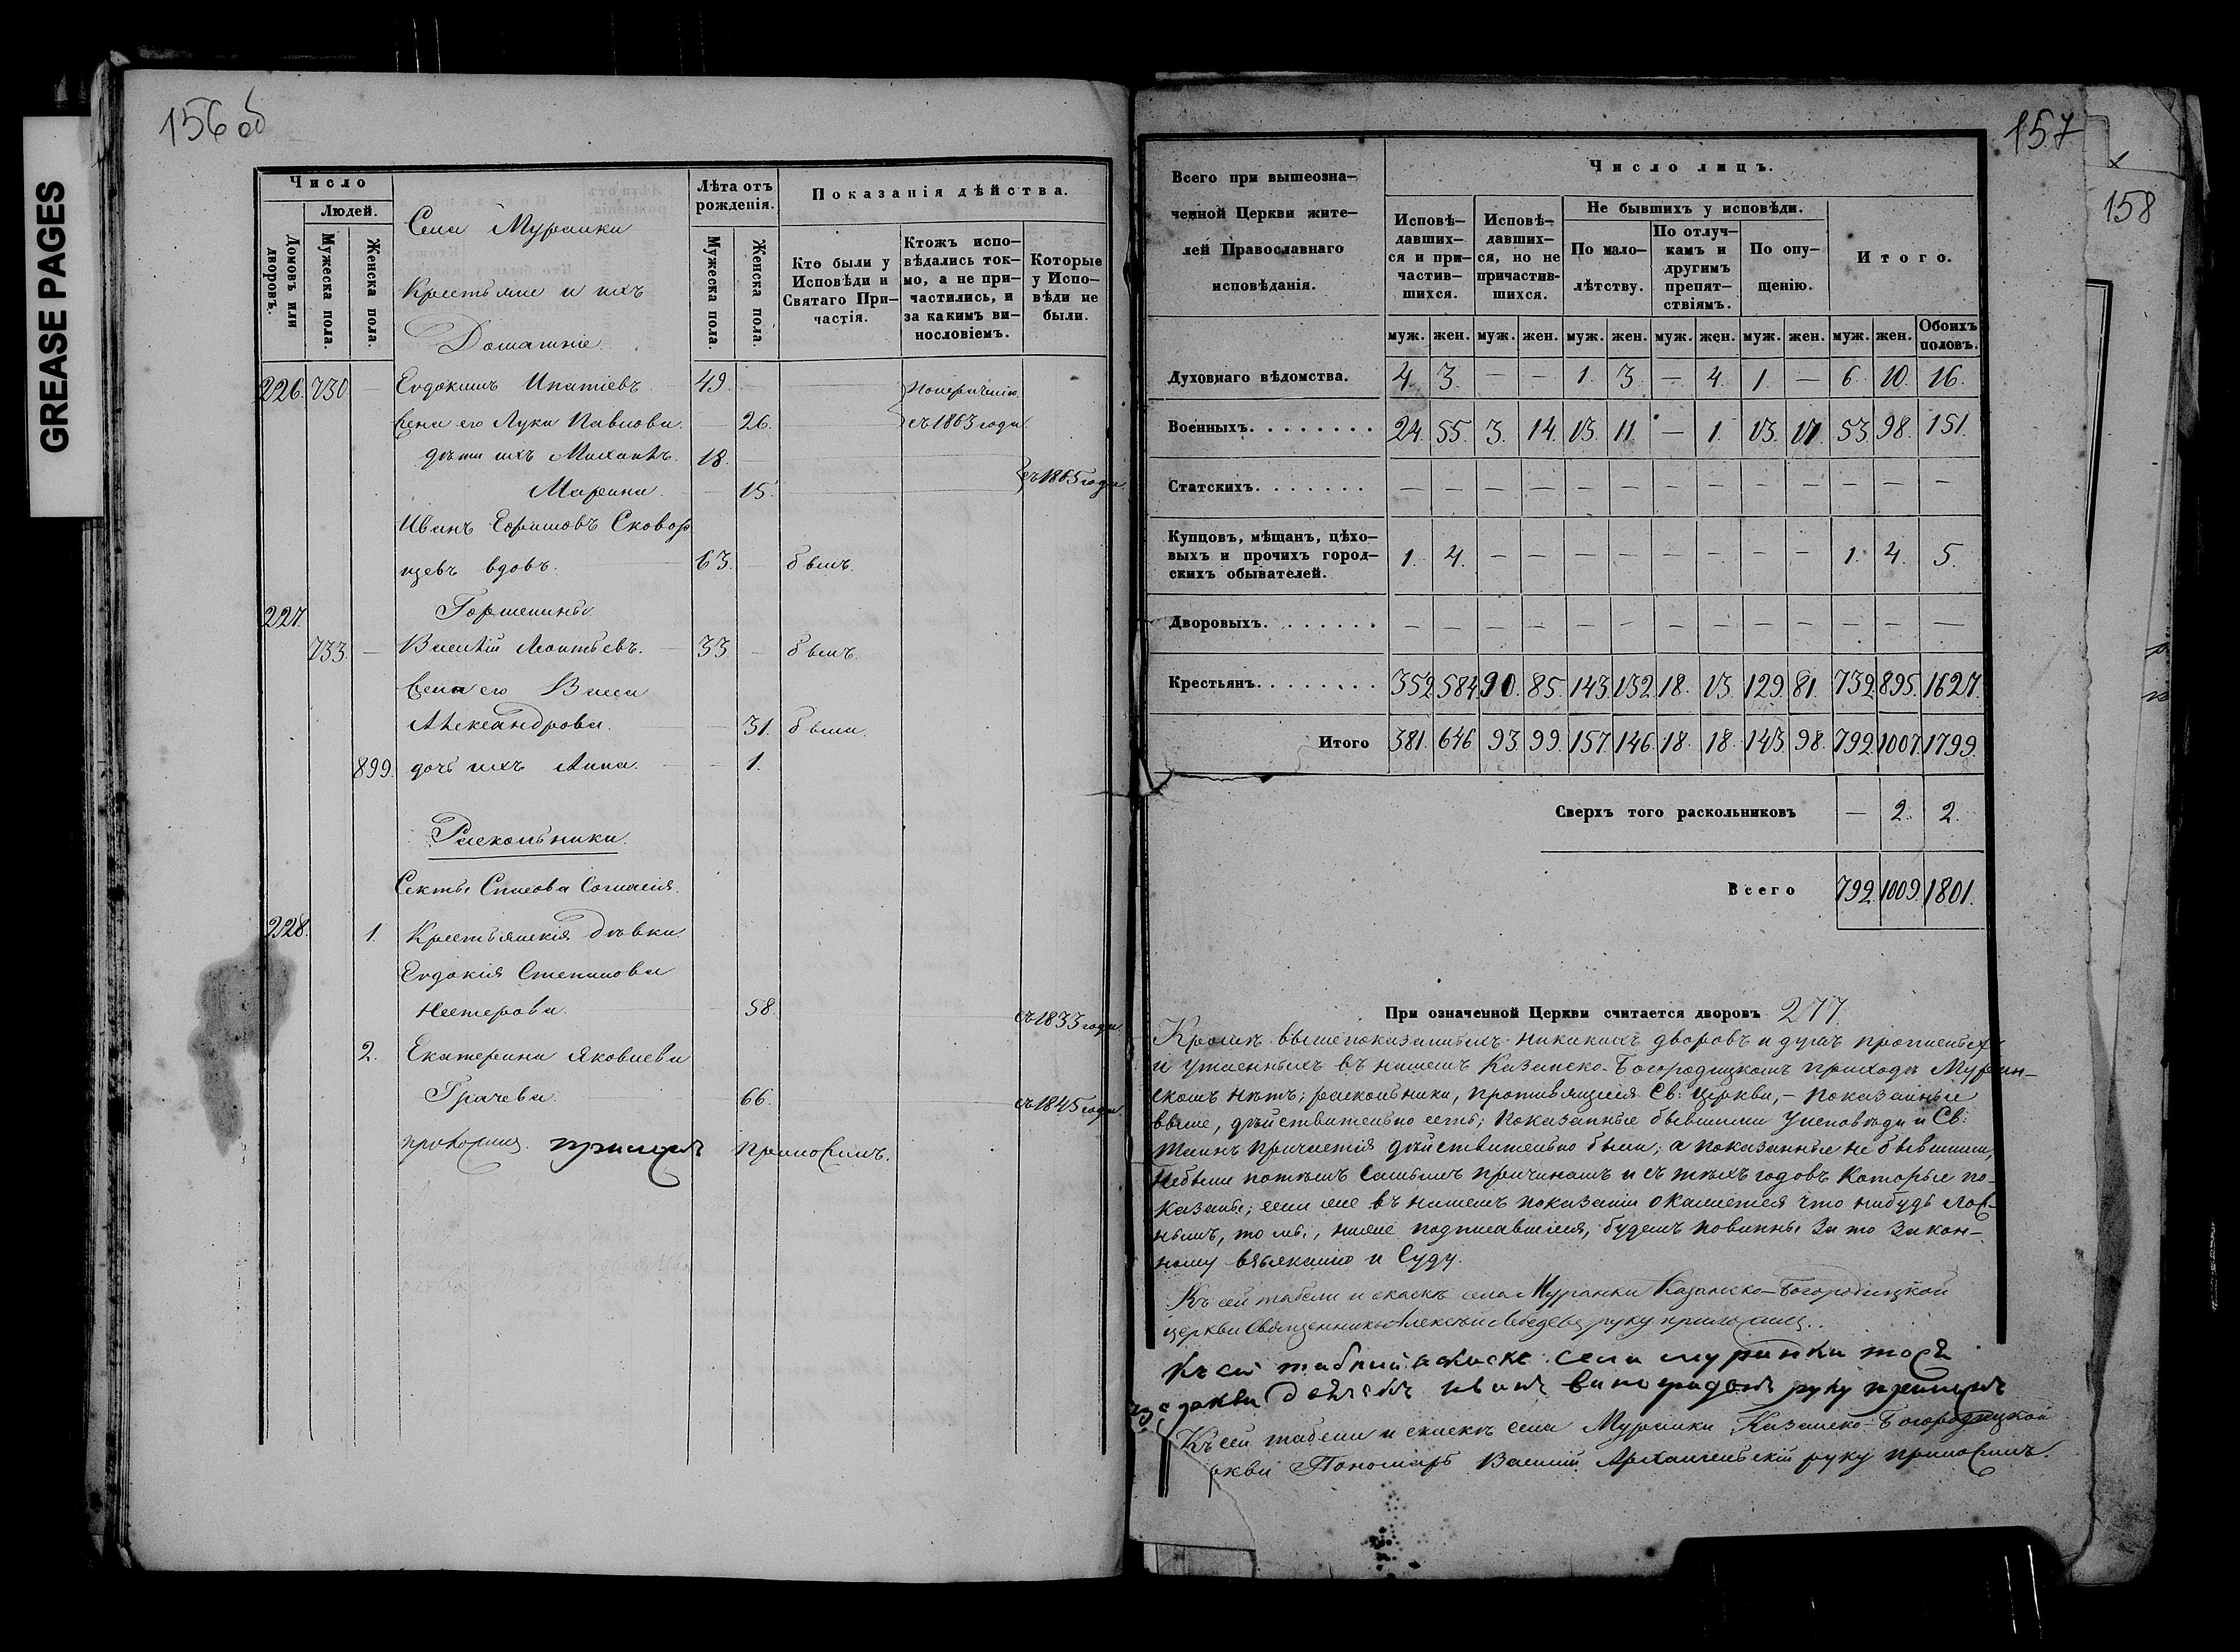 GREASE PAGES
156 об
Число
Людей.
Домовъ или дворовъ.
Мужеска пола.
Женска пола.
Села Муранки
Крестьяне и ихъ
Домашніе.
Лѣта отъ рожденія.
Мужеска пола.
Женска пола.
Показанія дѣйства.
Кто были у Исповѣди и Святаго Причастія.
Ктожъ исповѣдались токмо, а не причастились, и за какимъ винословіемъ.
Которые у Исповѣди не были.
226. 730 — Евдокимъ Ипатіевъ. 49.
Жена его Лукія Павлова. — 26. съ 1863 года.
дѣти ихъ Михаилъ. 18. —
Марина. — 15. съ 1865 года.
Иванъ Ефимовъ Сковор
цевъ вдовъ. 63. — былъ.
227. Горшенины.
733. — Василій Леонтьевъ. 33 — былъ.
Жена его Васса
Александрова. — 31. была.
899. дочь ихъ Анна. — 1.
Раскольники.
Секты Спасова Согласія.
228. 1. Крестьянскія дѣвки
Евдокія Степанова
Нестерова. — 58. съ 1833 года
2. Екатерина Яковлева
Грачева. 66. съ 1845 года
приложилъ.
157
158
Всего при вышеозначенной Церкви жителей Православнаго исповѣданія.
Число лицъ.
Исповѣдавшихся и причастившихся.
Исповѣдавшихся, но не причастившихся.
Не бывшихъ у исповѣди.
По малолѣтству.
По отлучкамъ и другимъ препятствіямъ.
По опущенію.
Итого.
муж. жен. муж. жен. муж. жен. муж. жен. муж. жен. муж. жен. Обоихъ половъ.
Духовнаго вѣдомства. 4. 3. — — 1. 3. — 4. 1. — 6. 10. 16.
Военныхъ. 24. 55. 3. 14. 13. 11. — 1. 13. 17. 53. 98. 151.
Статскихъ. — — — — — — — — — — — — —
Купцовъ, мѣщанъ, цѣховыхъ и прочихъ городскихъ обывателей. 1. 4. — — — — — — — — 1. 4. 5.
Дворовыхъ. — — — — — — — — — — — — —
Крестьянъ. 352. 584. 90. 85. 143. 132. 18. 13. 129. 81. 732. 895. 1627.
Итого 381. 646 93. 99. 157. 146. 18. 18. 143. 98. 792. 1007. 1799.
Сверхъ того раскольниковъ — 2. 2.
Всего 792. 1009. 1801.
При означенной Церкви считается дворовъ 277.
Кромѣ вышепоказанныхъ никакихъ дворовъ и душъ прописныхъ
и утаенныхъ въ нашемъ Казанско-Богородицкомъ приходѣ Муран-
скомъ нѣтъ; раскольники, противящіеся Св: Церкви, — показанные
выше, дѣйствительно есть; показанные бывшими у исповѣди и Св:
Таинъ причастія дѣйствительно были; а показанные не бывшими,
небыли потѣмъ самымъ причинамъ и съ тѣхъ годовъ которые по-
казаны; если же въ нашемъ показаніи окажется что нибудь лож-
нымъ, то мы, ниже подписавшіеся, будемъ повинны за то закон-
ному взысканію и Суду.
Къ сей табели и сказкѣ села Муранки Казанско-Богородицкой
церкви Священникъ Алексѣй Лебедевъ руку приложилъ.
Къ сей села муранки тоеъ
иванъ виноградовъ руку
Къ сей табели и сказкѣ села Муранки Казанско-Богородицкой
церкви Пономарь Василій Архангельскій руку приложилъ.